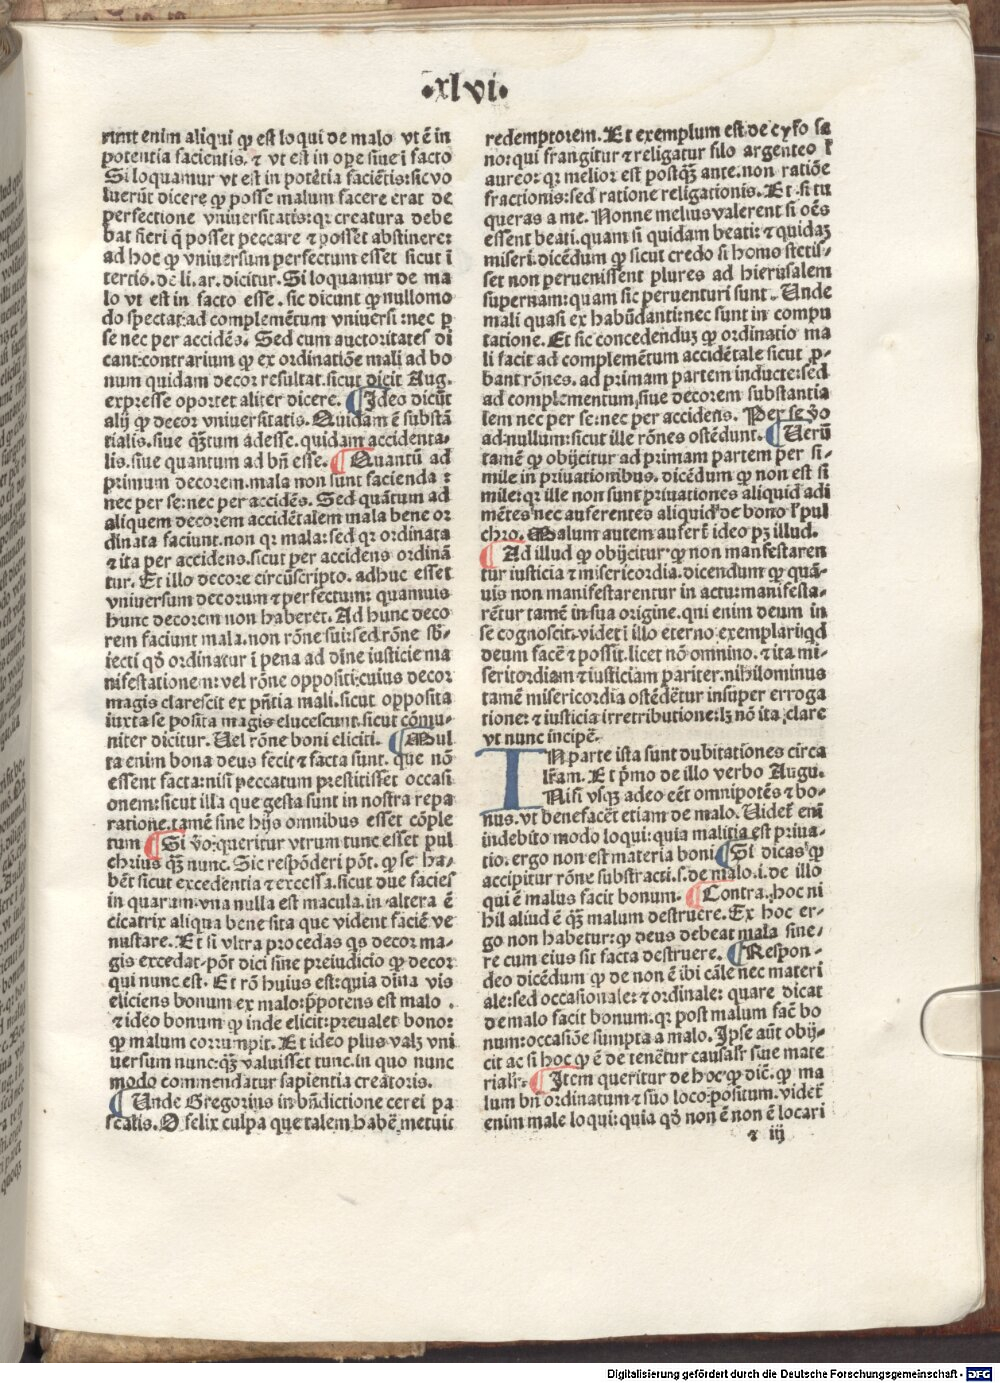 ·xlvi·
runt enim aliqui ꝙ est loqui de malo vt ē in
potentia facientis. ⁊ vt est in oꝑe siue ī facto
Si loquamur vt est in potētia faciētis: sic vo
luerūt dicere ꝙ posse malum facere erat de
perfectione vniuersitatis: qꝛ creatura debe
bat fieri q̄ posset peccare ⁊ posset abstinere:
ad hoc ꝙ vniuersum perfectum esset sicut ī
tertio. de li. ar. dicitur. Si loquamur de ma
lo vt est in facto esse. sic dicunt ꝙ nullomo
do spectat ad complemētum vniuersi: nec ꝑ
se nec per accidēs. Sed cum auctoritates di
cant contrarium ꝙ ex ordinatiōe mali ad bo
num quidam decor resultat. sicut dicit Aug.
expresse oportet aliter dicere. Ideo dicūt
alij ꝙ decor vniuersitatis. Quidam ē substā
tialis. siue q̄ꝫtum ad esse. quidam accidenta-
lis. siue quantum ad bñ esse. Quantū ad
primum decorem. mala non sunt facienda:
nec per se: nec per accidēs. Sed quātum ad
aliquem decorem accidētalem mala bene or
dinata faciunt. non qꝛ mala: sed qꝛ ordinata
⁊ ita per accidens. sicut per accidens ordinā
tur. Et illo decore circūscripto. adhuc esset
vniuersum decorum ⁊ perfectum: quamuis
hunc decorem non haberet. Ad hunc deco
rem faciunt mala. non rōne sui: sed rōne sb̄-
iecti qd̄ ordinatur ī pena ad dīne iusticie ma
nifestationem: vel rōne oppositi: cuius decor
magis clarescit ex pñtia mali. sicut opposita
iuxta se posita magis elucescunt. sicut cōmu-
niter dicitur. Uel rōne boni eliciti. Mul
ta enim bona deus fecit ⁊ facta sunt. que nō
essent facta: nisi peccatum prestitisset occasi
onem: sicut illa que gesta sunt in nostra repa
ratione. tamē sine hijs omnibus esset cōple
tum Si v̄o queritur vtrum tunc esset pul
chrius q̄ꝫ nunc. Sic respōderi pōt. ꝙ se ha-
bēt sicut excedentia ⁊ excessa. sicut due facies
in quarum vna nulla est macula. in altera ē
cicatrix aliqua bene sita que vident̄ faciē ve
nustare. Et si vltra procedas q̄s decor ma-
gis excedat. pōt dici sine preiudicio ꝙ decor
qui nunc est. Et rō huius est: quia diuīa vis
eliciens bonum ex malo: p̄potens est malo.
⁊ ideo bonum ꝙ inde elicit: preualet bono:
ꝙ malum corrumpit. Et ideo plus valꝫ vni
uersum nunc: q̄ꝫ valuisset tunc. in quo nunc
modo commendatur sapientia creatoris.
Unde Gregorius in bñdictione cerei pa
scalis. O felix culpa que talem habē metuit
redemptorem. Et exemplum est de cyfo sa
no: qui frangitur ⁊ religatur filo argenteo ł
aureo: qꝛ melior est postq̄ꝫ ante. non ratiōe
fractionis: sed ratione religationis. Et si tu
queras a me. Nonne melius valerent si oēs
essent beati. quam si quidam beati: ⁊ quidaꝫ
miseri. dicēdum ꝙ sicut credo si homo stetis-
set non peruenissent plures ad hierusalem
supernam: quam sic peruenturi sunt. Unde
mali quasi ex habūdanti: nec sunt in compu
tatione. Et sic concedenduꝫ ꝙ ordinatio ma
li facit ad complemētum accidētale sicut ꝓ-
bant rōnes. ad primam partem inducte: sed
ad complementum siue decorem substantia
lem nec per se: nec per accidens. Per se v̄o
ad nullum: sicut ille rōnes ostēdunt. Uerū
tamē ꝙ obijcitur ad primam partem per si-
mile in priuationibus. dicēdum ꝙ non est si
mile: qꝛ ille non sunt priuationes aliquid adi
mētes nec auferentes aliquid de bono ł pul
chro. Malum autem aufert: ideo pꝫ illud.
Ad illud ꝙ obijcitur ꝙ non manfestaren
tur iusticia ⁊ misericordia. dicendum ꝙ quā-
uis non manifestarentur in actu: manifesta-
rētur tamē in sua origine. qui enim deum in
se cognoscit. videt ī illo eterno exemplari: qd̄
deum facē ⁊ possit. licet nō omnino. ⁊ ita mi-
sericordiam ⁊ iusticiam pariter. nihilominus
tamē misericordia ostēdētur insuper erroga
tione: ⁊ iusticia irretributione: lꝫ nō ita clare
vt nunc incipē.
IN parte ista sunt dubitationes circa
lr̄am. Et p̄mo de illo verbo Augu.
Nisi vsqꝫ adeo eēt omnipotēs ⁊ bo-
nus. vt benefacēt etiam de malo. Uidet̄ em̄
indebito modo loqui: quia malitia est priua-
tio. ergo non est materia boni Si dicas ꝙ
accipitur rōne substracti. s. de malo. i. de illo
qui ē malus facit bonum. Contra. hoc ni
hil aliud ē q̄ꝫ malum destruere. Ex hoc er-
go non habetur: ꝙ deus debeat mala sine-
re cum eius sit facta destruere. Respon-
deo dicēdum ꝙ de non ē ibi cāle nec materi
ale: sed occasionale: ⁊ ordinale: quare dicat
de malo facit bonum. qꝛ post malum facē bo
num: occasiōe sumpta a malo. Ipse aūt obij-
cit ac si hoc ꝙ ē de tenētur causalr̄ siue mate
rialr̄. Item queritur de hoc ꝙ dic̄. ꝙ ma
lum bn̄ ordinatum ⁊ suo loco positum. videt̄
enim male loqui: quia qd̄ non ē non ē locari
⁊ iij
Digitalisierung gefördert durch die Deutsche Forschungsgemeinschaft - DFG